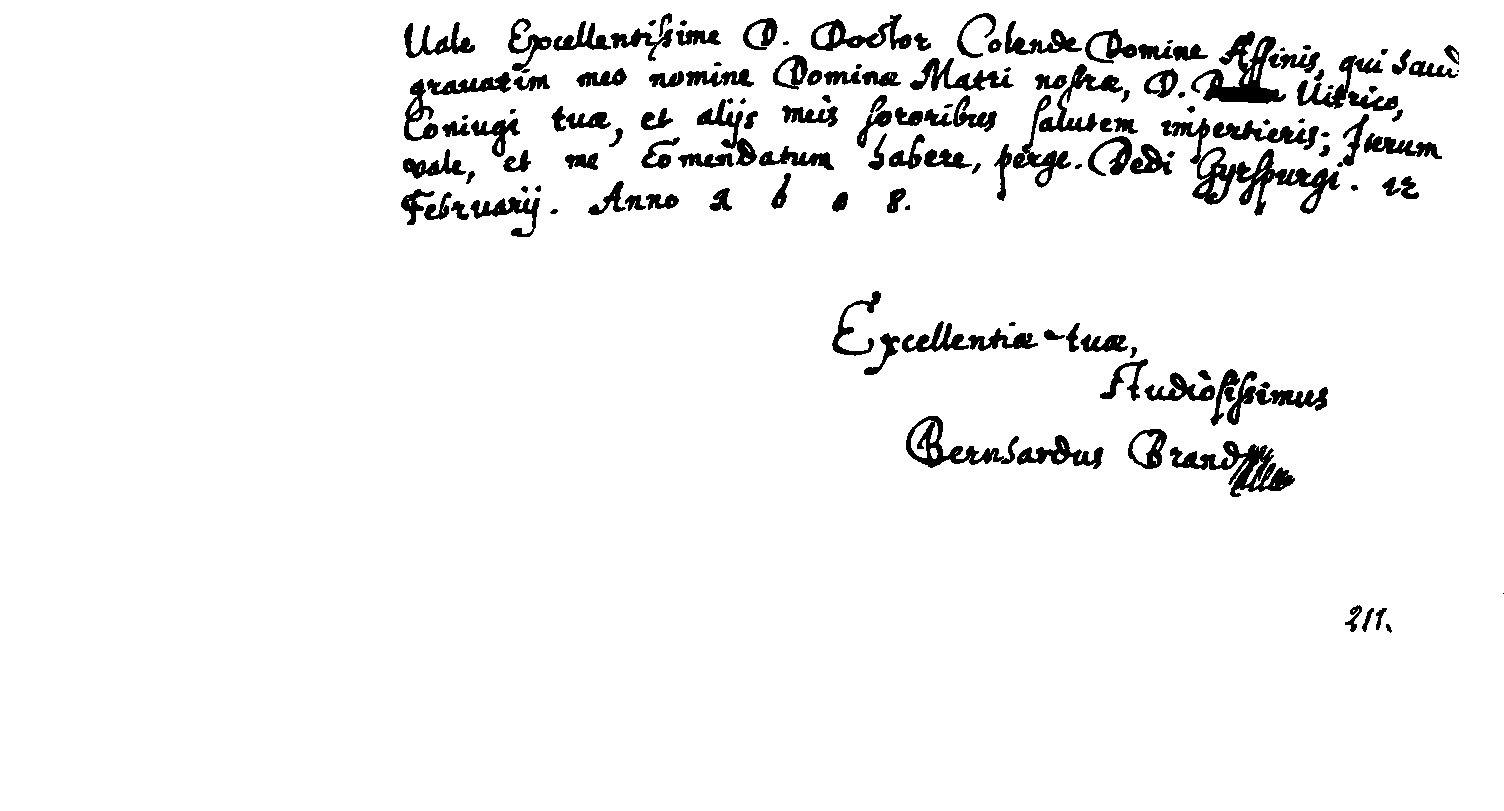 Vale Excellentissime D. Doctor Colende Domine Affinis, qui haud
grauatim meo nomine Dominæ Matri nostræ, D. Vitrico,
Coniugi tuæ, et alijs meis sororibus salutem impertieris; Iterum
vale, et me Com̄endatum habere, perge. Dedi Gyrspurgi. 12
Februarij. Anno 1 6 0 8.
Excellentiæ tuæ,
Studiosissimus
Bernhardus Brand
211.